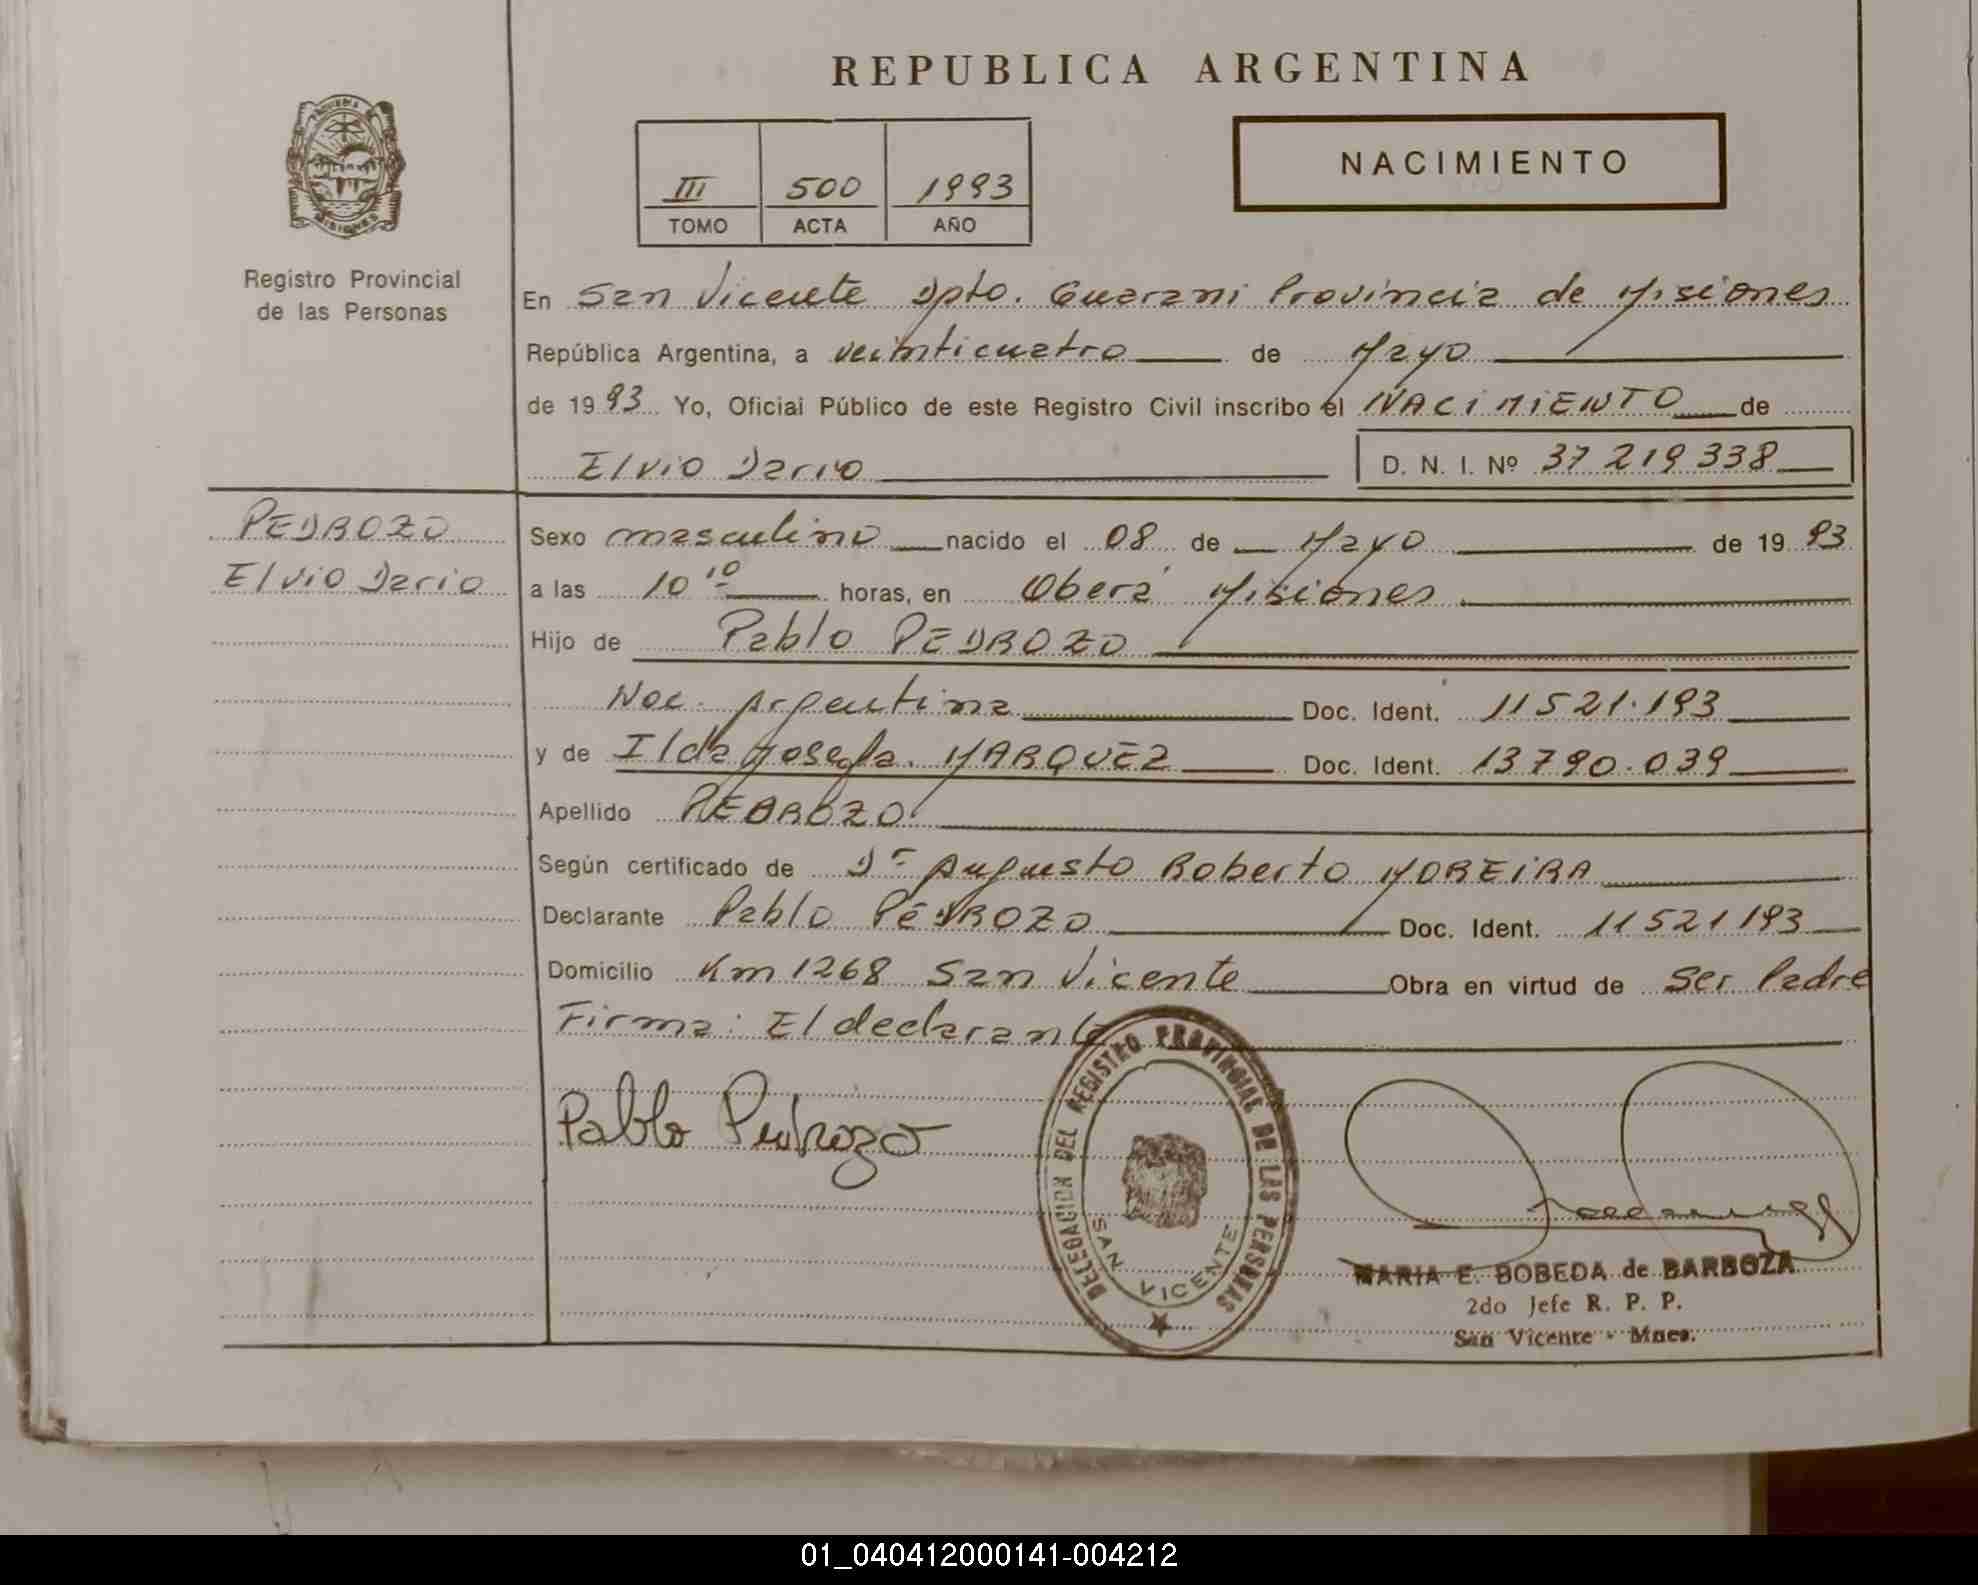 REPUBLICA ARGENTINA
NACIMIENTO
III 500 1993
TOMO ACTA AÑO
Registro Provincial
de las Personas
En San Vicente Dpto. Guarani Provincia de Misiones
República Argentina, a veinticuatro de Mayo
de 19 93 Yo, Oficial Público de este Registro Civil inscribo el NACIMIENTO de
Elvio Dario D. N. I. Nº 37 219 338
PEDROZO
Elvio Dario
Sexo masculino nacido el 08 de Mayo de 19 93
a las 10 10 horas, en Oberá Misiones
Hijo de Pablo PEDROZO
Nac. Argentina Doc. Ident. 11521.193
y de Ilda Josefa MARQUEZ Doc. Ident. 13790.039
Apellido PEDROZO
Según certificado de Dr Augusto Roberto MOREIRA
Declarante Pablo PEDROZO Doc. Ident. 11521193
Domicilio Km 1268 San Vicente Obra en virtud de Ser Padre
Firma: El declarante
Pablo Pedrozo
DELEGACION DEL REGISTRO PROVINCIAL DE LAS PERSONAS
SAN VICENTE
MARIA E. BOBEDA de BARBOZA
2do Jefe R. P. P.
San Vicente - Mnes.
01_040412000141-004212